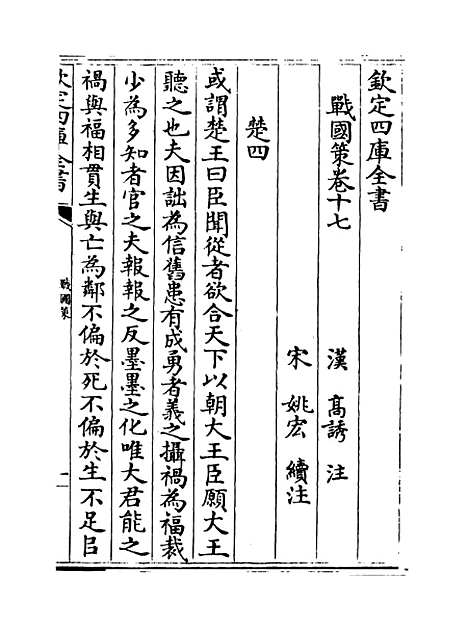 欽定四庫全書
戰國策卷十七
漢 高誘 注
宋 姚宏 續注
楚四
或謂楚王曰臣聞從者欲合天下以朝大王臣願大王
聽之也夫因詘為信舊患有成勇者義之攝禍為福裁
少為多知者官之夫報報之反墨墨之化唯大君能之
禍與福相貫生與亡為鄰不偏於死不偏於生不足㠯
欽定四庫全書
戰國策